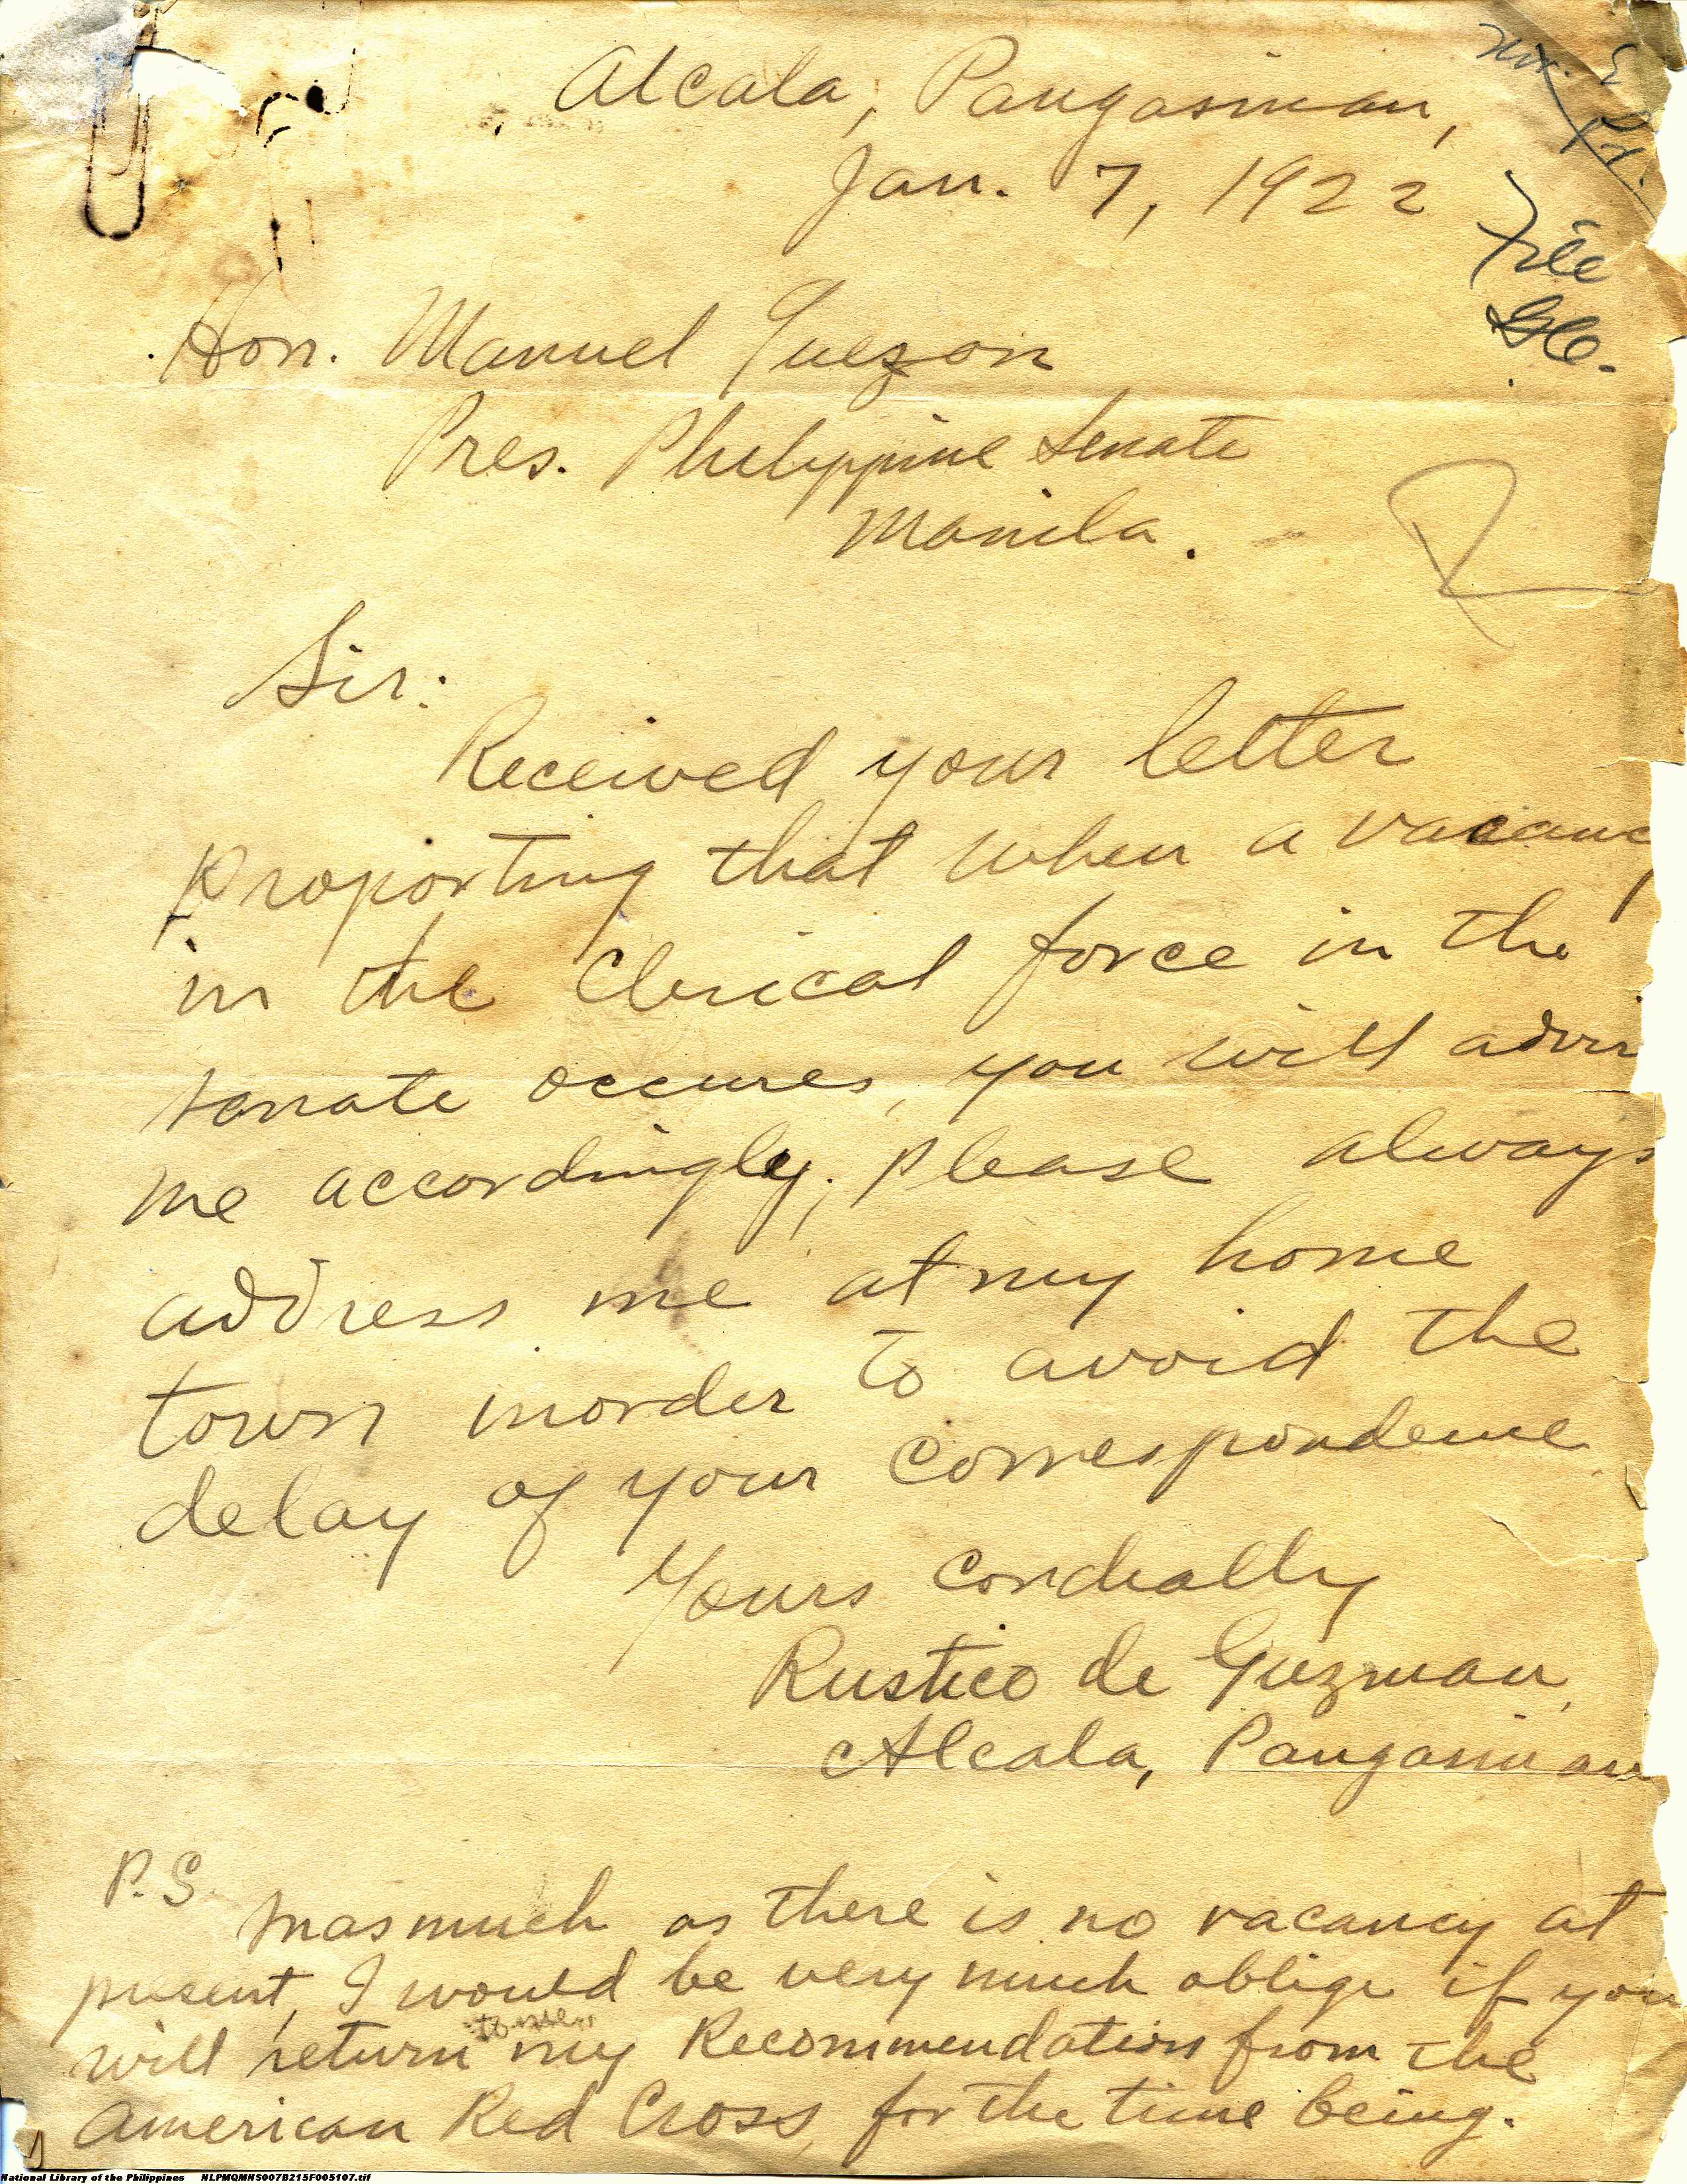 Alcala, Pangasinan,
Jan. 7, 1922
File
Hon. Manuel Quezon
Pres. Philippine Senate
Manila.
Sir:
Received your letter
proporting that when a vacancy
in the Clerical force in the
senate occures, you will advis
me accordingly; please always
address me at my home
town inorder to avoid the
delay of your correspondence
Yours cordially
Rustico de Guzman,
Alcala, Pangasinan
P.S.
Inasmuch as there is no vacancy at
present, I would be very much oblige if you
to me
will return my Recommendation from the
American Red Cross, for the time being.
National Library of the Philippines NLPMQMNS007B215F005107.tif